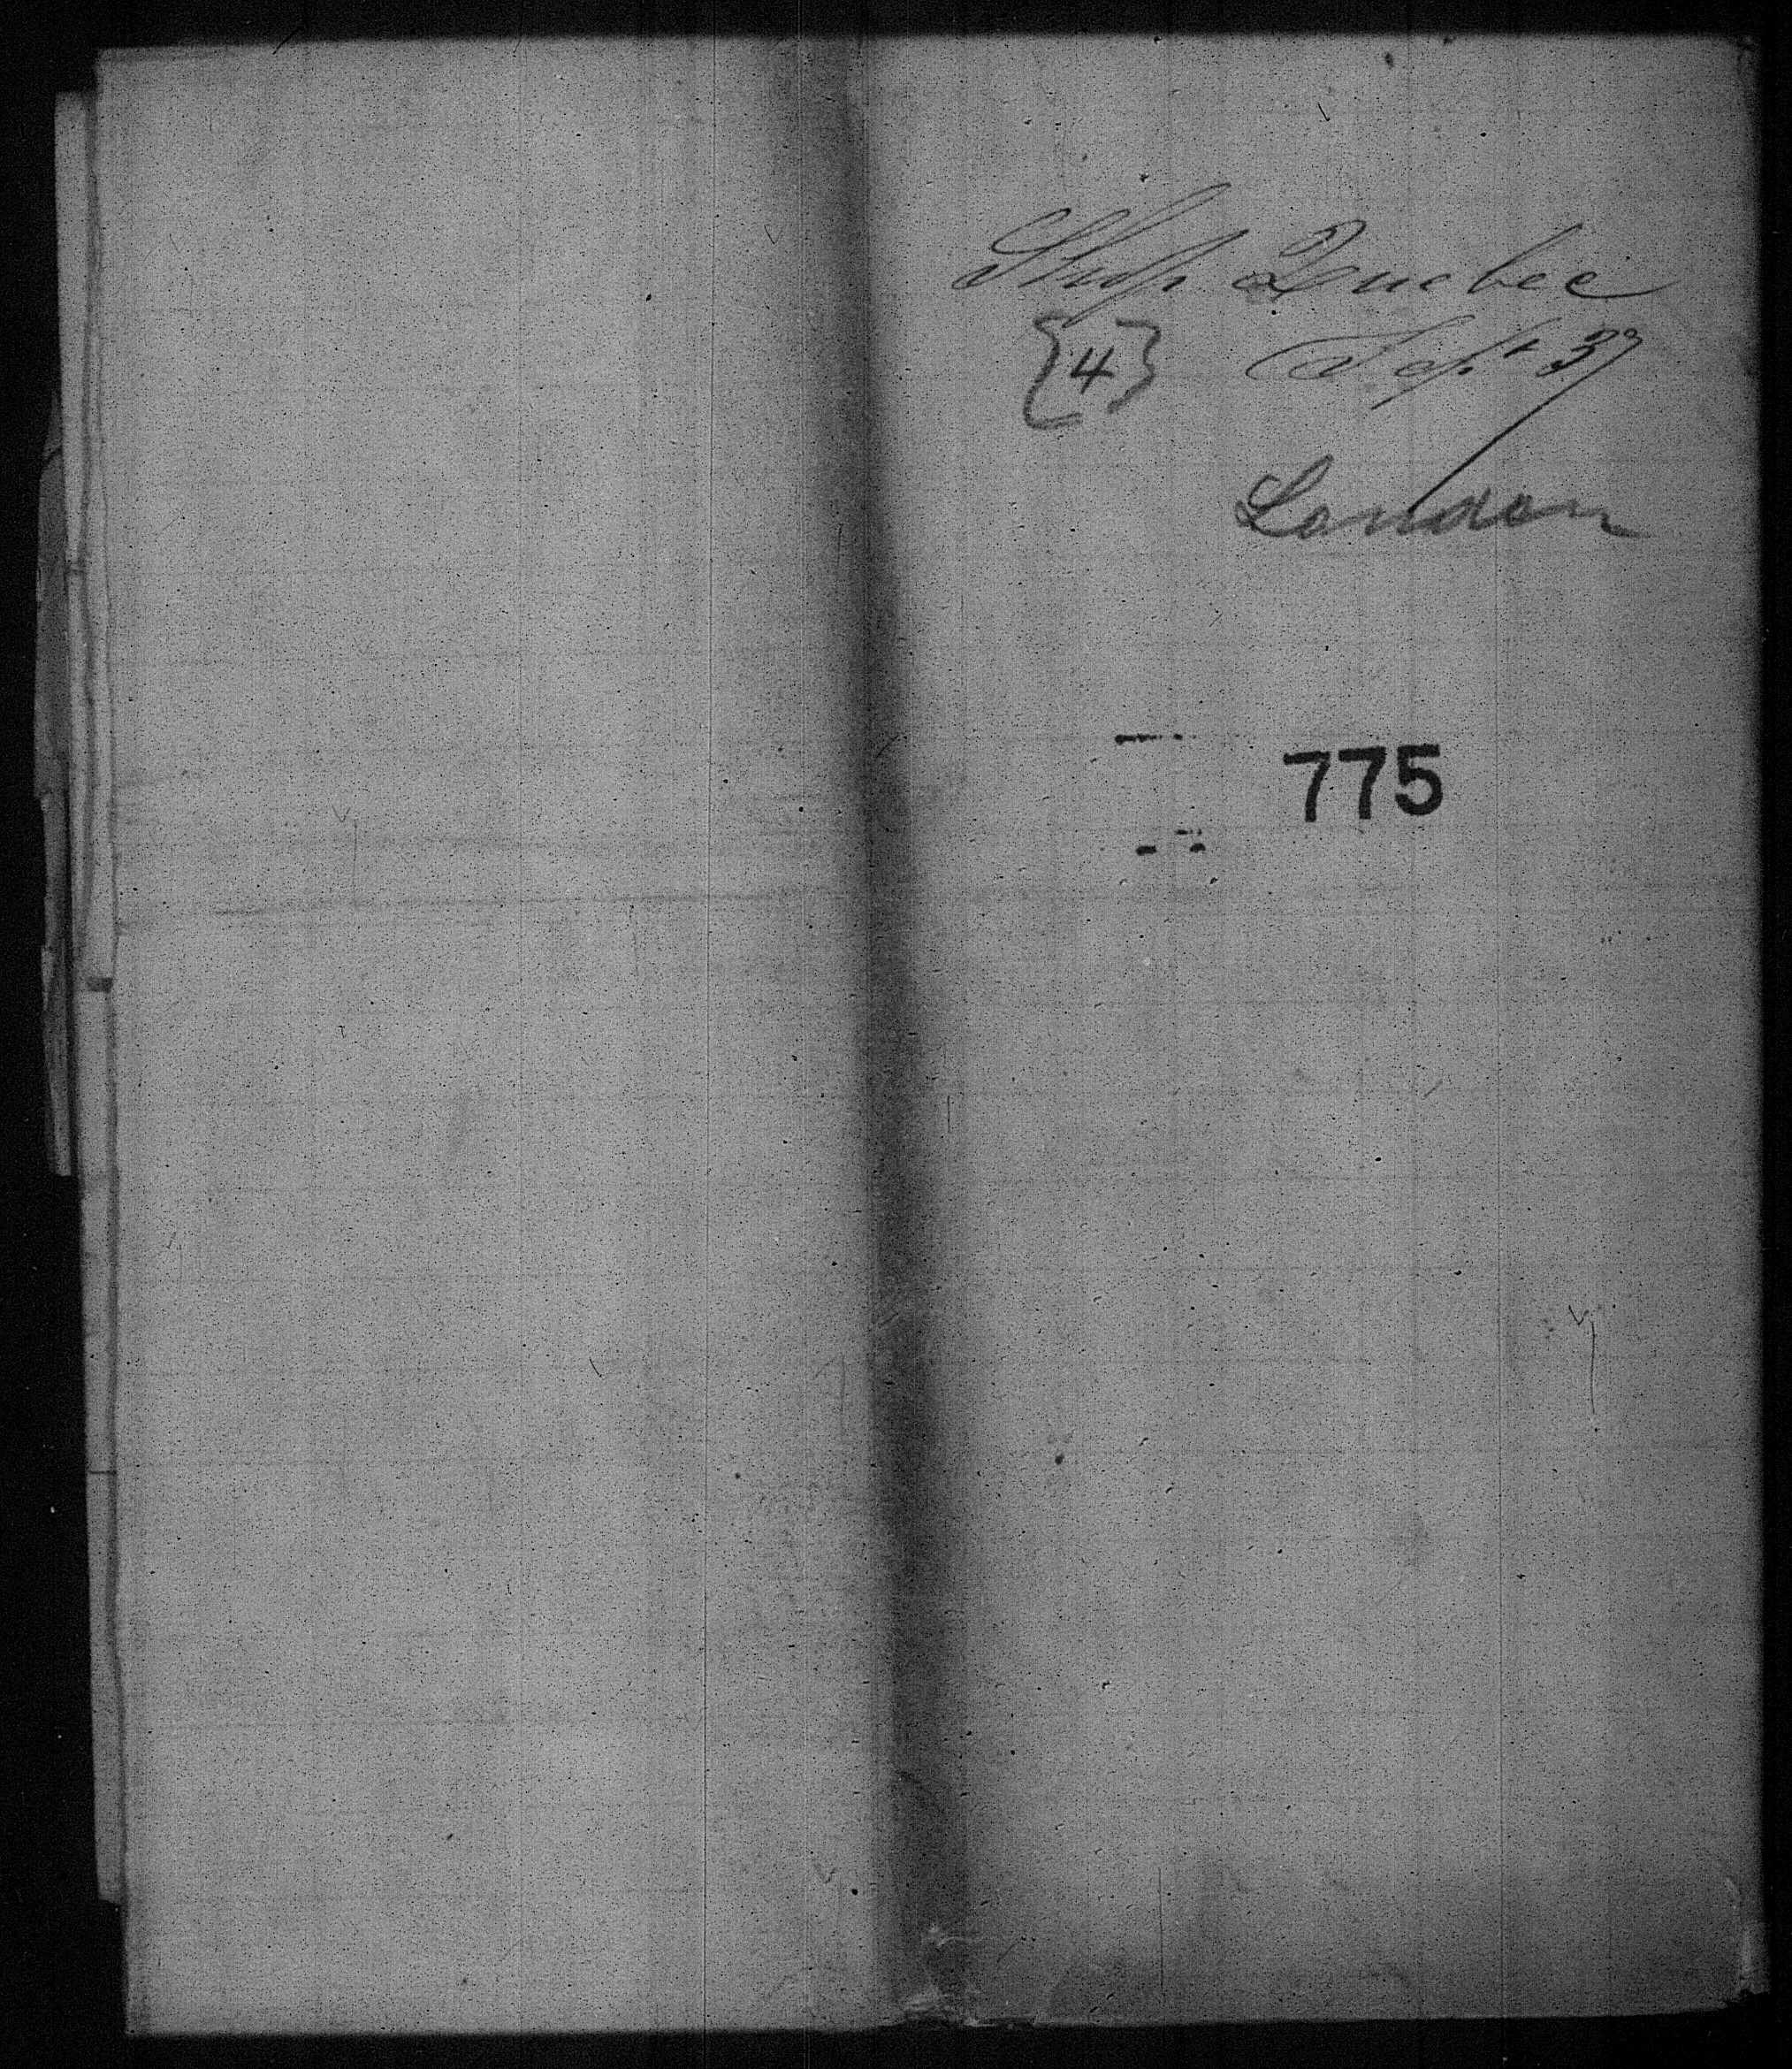 Ship Quebec
{4} Sept 37
London
775